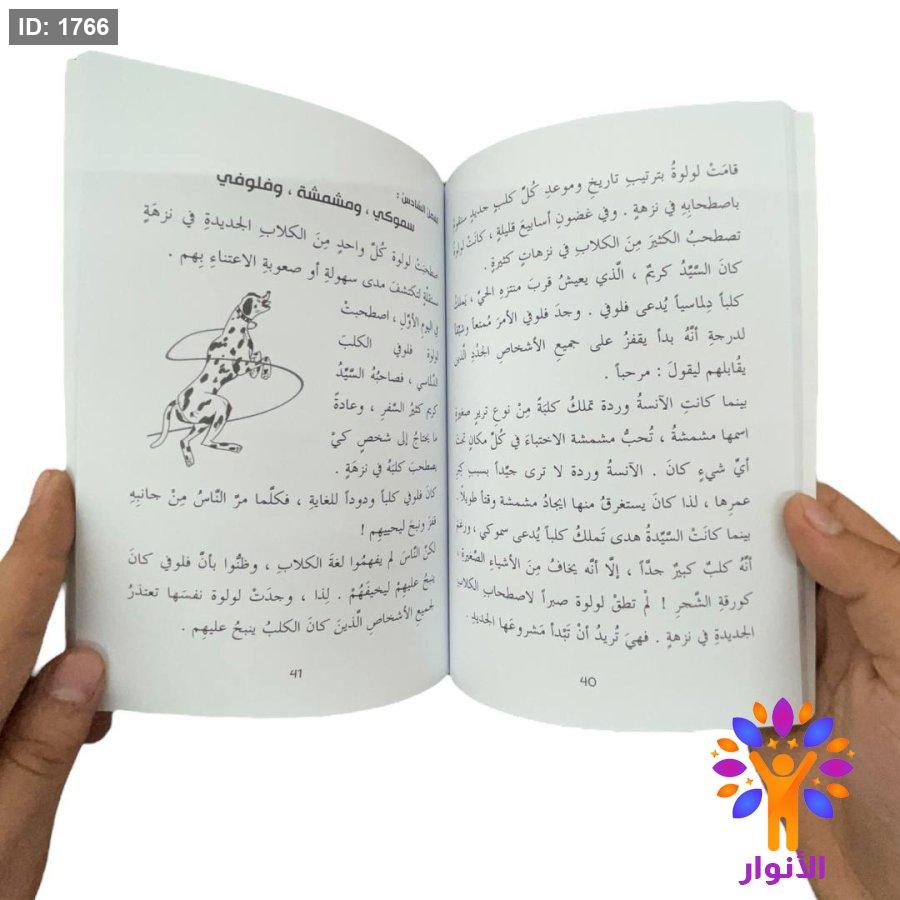 ID: 1766
قامَتْ لولوةُ بترتيبِ تاريخِ وموعدِ كُلِّ كلبٍ جديدٍ ستقومُ
باصطحابِهِ في نزهةٍ . وفي غضونِ أسابيعَ قليلةٍ ، كانَتْ لولوة
تصطحبُ الكثيرَ مِنَ الكلابِ في نزهاتٍ كثيرةٍ .
كانَ السَّيِّدُ كريمٌ ، الَّذي يعيشُ قربَ منتزهِ الحيِّ ، يَملكُ
كلباً دِلماسياً يُدعى فلوفي . وجدَ فلوفي الأمرَ مُمتعاً وشيّقاً
لدرجةِ أنَّهُ بدأَ يقفزُ على جميعِ الأشخاصِ الجُدُدِ الَّذين
يقُابلهم ليقولَ : مرحباً .
بينما كانتِ الآنسةُ وردة تملكُ كلبَةً مِنْ نوعِ تريرٍ صغيرة
اسمها مشمشةُ ، تُحبُّ مشمشة الاختباءَ في كُلِّ مكانٍ تحتَ
أيِّ شيءٍ كانَ . الآنسةُ وردة لا ترى جيِّداً بسببِ كِبَرِ
عمرِها ، لذا كانَ يستغرقُ منها ايجادُ مشمشة وقتاً طويلاً .
بينما كانَتْ السَّيِّدةُ هدى تَملكُ كلباً يُدعى سموكي ، ورغمَ
أنَّهُ كلبٌ كبيرٌ جدَّاً ، إلّا أنَّه يخافُ مِنَ الأشياءِ الصَّغيرةِ ،
كورقةِ الشَّجرِ ! لمْ تطقْ لولوة صبراً لاصطحابِ الكلابِ
الجديدةِ في نزهةٍ . فهيَ تُريدُ أنْ تَبْدأَ مَشروعَها الجديدَ .
40
الفصل السادسُ :
سموكي ، ومشمشة ، وفلوفي
اصطحبَتْ لولوة كُلَّ واحدٍ مِنَ الكلابِ الجديدةِ في نزهَةٍ
مستقلّةٍ لتكتشفَ مدى سهولةِ أو صعوبةِ الاعتناءِ بِهم .
في اليومِ الأوّلِ ، اصطحبتْ
لولوة فلوفي الكلبَ
الدِّلماسي ، فصاحبُهُ السَّيِّدُ
كريم كثيرُ السَّفرِ ، وعادةً
ما يحتاجُ إلى شخصٍ كيْ
يصطحبَ كلبَهُ في نزهَةٍ .
كانَ فلوفي كلباً ودوداً للغايةِ ، فكلّما مرَّ النَّاسُ مِنْ جانبِهِ
قفزَ ونبحَ ليحييهِم !
لكنَّ النَّاسَ لم يفهمُوا لغةَ الكلابِ ، وظنُّوا بأنَّ فلوفي كانَ
ينبحُ عليهمْ ليخيفَهُمْ . لِذا ، وجدَتْ لولوة نفسَها تعتذرُ
لجميعِ الأشخاصِ الَّذينَ كانَ الكلبُ ينبحُ عليهِم .
41
الأنوار